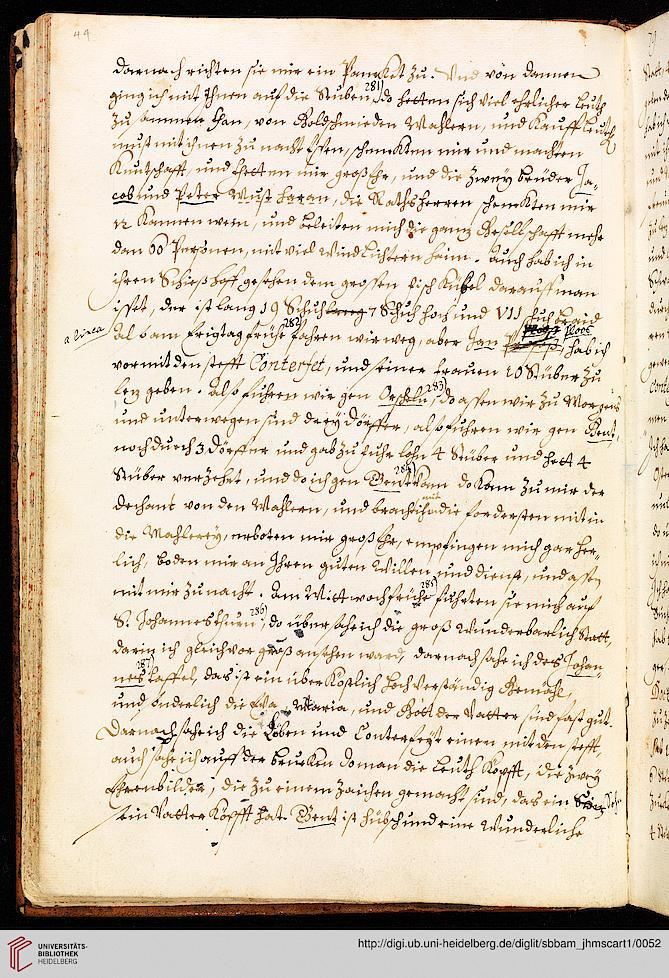 44
darnach richten sie mir ein Panckhet zu. Und von dannen
ging ich mit Ihnen auf die Stuben, 281) do hetten sich viel ehrlicher Leuth
zu sammen than, von Goldschmieden Mahlern, und Kauffleuth
must mit ihnen zu nacht essen, schenckten mir und machten
Kuntschafft, und hetten mir groß Ehr, und die zweÿ brüder Ja-
cob und Peter Mustharan, die Rathsherren schenckten mir
12 Kannen wein, und beleiten mich die ganz Gesellschafft mehr
dan 60 Personen, mit viel Windlichtern heim. Auch hab ich in
ihren Schießhof gesehen den grossen Fisch Kübel darauff man
isset, der ist lang 19 Schuch 7 Schuch hoch und VII Schuch braid
a linea
Also am Frigtag frühe 282) fahren wir weg, aber Jan Ploos hab ich
vor mit den stefft Conterfet, und seiner Frauen 10 Stüber zu
lez geben. Also fuhren wir gen Orscheln, 283) do assen wir zu Morgens
und unterwegen sind dreÿ Dörffer, also fuhren wir gen Gent,
noch durch 3 Dörffer und gab zu fuhr lohn 4 Stüber und hett 4
Stüber verzehrt, und do ich gen Gent kam 284) do kam zu mir der
dechant von den Mahlern, und bracht mit ihm die fordersten mit in
die Mahlereÿ, erboten mir groß Ehr, empfingen mich gar her-
lich, boden mir an Ihren guten Willen und dienst, und assen
mit mir zu nacht. Am Mittwoch frühe 285) fuhrten sie mich auf
S. Johannes thurn, 286) do übersahe ich die groß wunderbarlich Statt,
darin ich gleich vor groß ansehen ward, darnach sahe ich des Johan-
nes 287) taffel, das ist ein über Köstlich hoch verständig Gemähl,
und sonderlich die Eva, Maria, und Gott der Vatter sind fast gut.
Darnach sahe ich die Löben und Conterfeyt einen mit den stefft,
auch sahe ich auff der brucken do man die Leuth Köpfft, die zweÿ
Ehrenbilder, die zu einem zaichen gemacht sind, das ein Sohn
sein Vatter Köpfft hat. Gent ist hübsch und eine wunderliche
UNIVERSITÄTS-
BIBLIOTHEK
HEIDELBERG
http://digi.ub.uni-heidelberg.de/diglit/sbbam_jhmscart1/0052